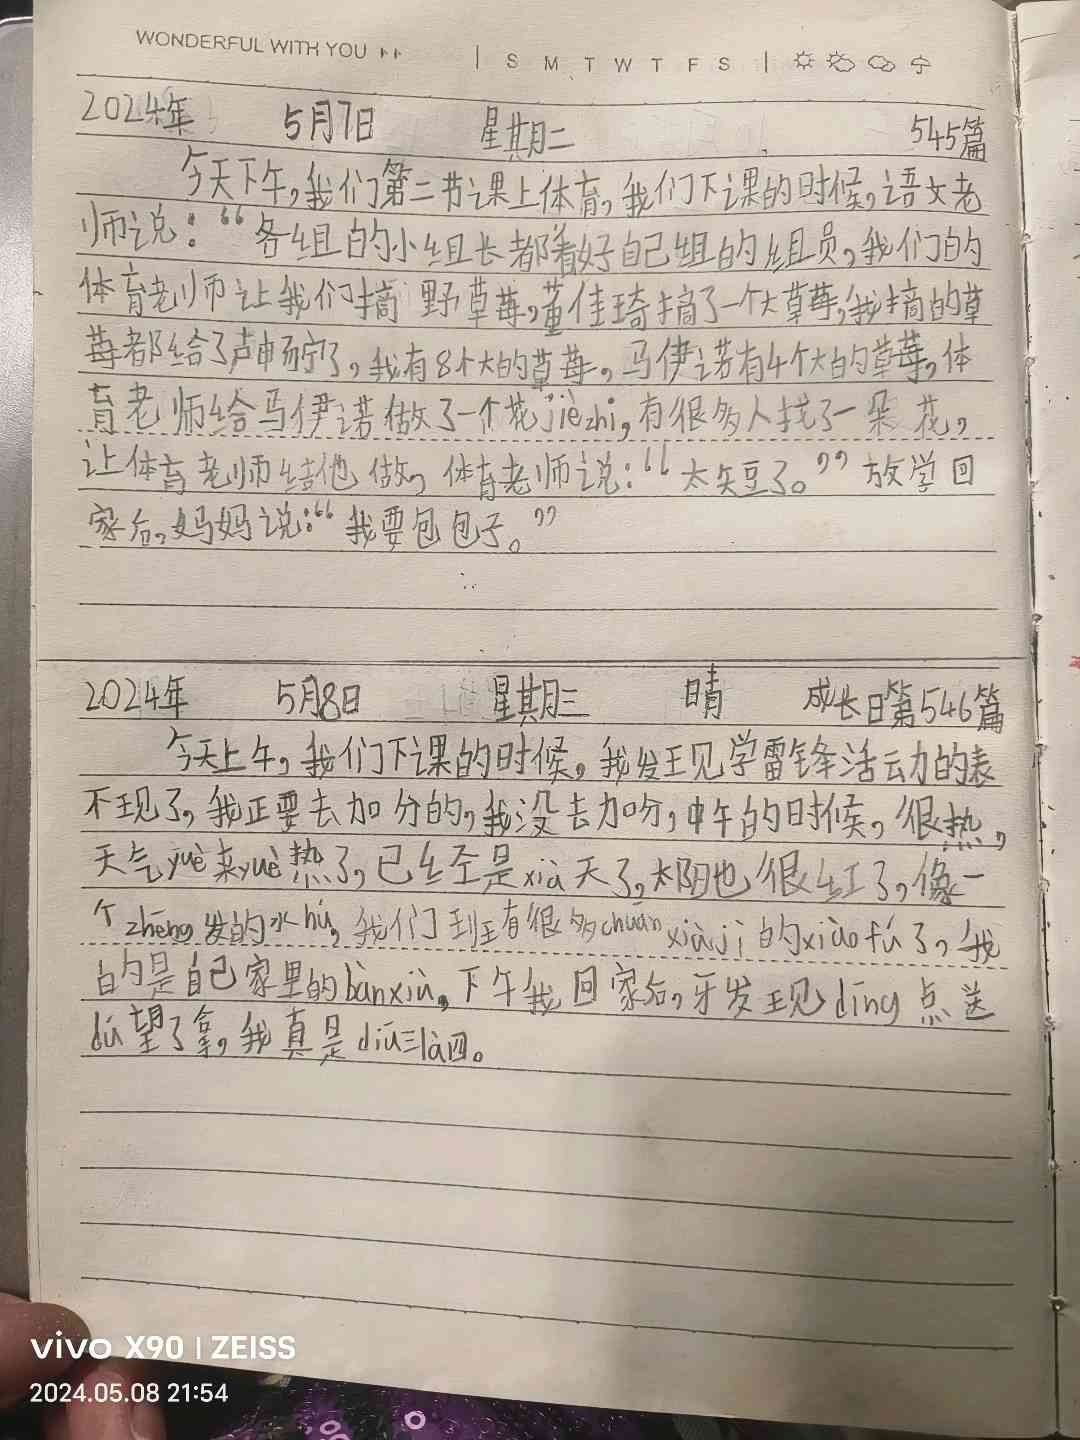 WONDERFUL WITH YOU
S M T W T F S
2024年 5月7日 星期二 545篇
今天下午,我们第二节课上体育,我们下课的时候,语文老
师说:“各组的小组长都着好自己组的组员,我们的
体育老师让我们摘野草莓,董佳琦摘了一个大草莓,我摘的草
莓都给了了,我有8个大的草莓。马伊诺有4个大的草莓,体
育老师给马伊诺做了一个花jièzhi,有很多人找了一朵花,
让体育老师给他做,体育老师说:“太矢豆了。”放学回
家后,妈妈说:“我要包包子。”
2024年 5月8日 星期三 晴 成长日第546篇
今天上午,我们下课的时候,我发现学雷锋活动的表
不现了,我正要去加分的,我没去加分,中午的时候,很热,
天气yuè来yuè热了,已经是xià天了,太阳也很红了,像一
个zhēng发的水hú,我们到现有很多chuān xiàjì的xiàofú了,我
的是自己家里的bànxiù。下午我回家后,牙发现dīng点送
dú望了拿,我真是diū三là四。
vivo X90 | ZEISS
2024.05.08 21:54